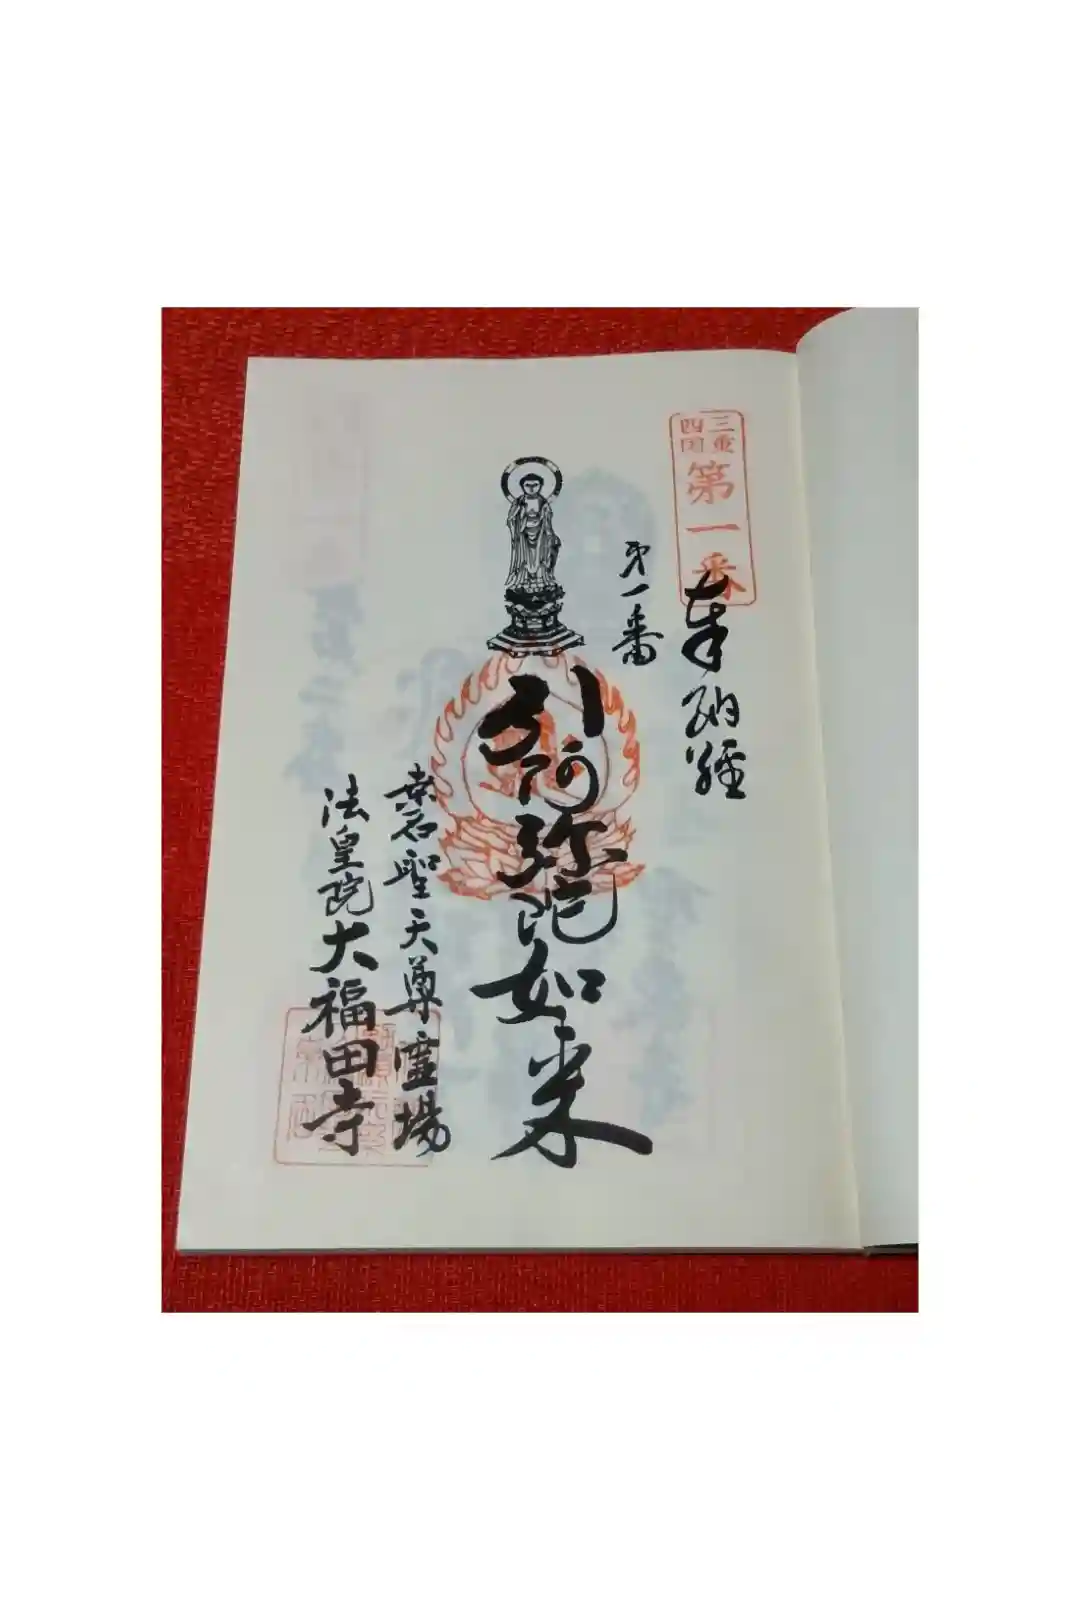 三重
四国
第一番
奉納経
第一番
阿弥陀如来
桑名聖天尊霊場
法皇院大福田寺